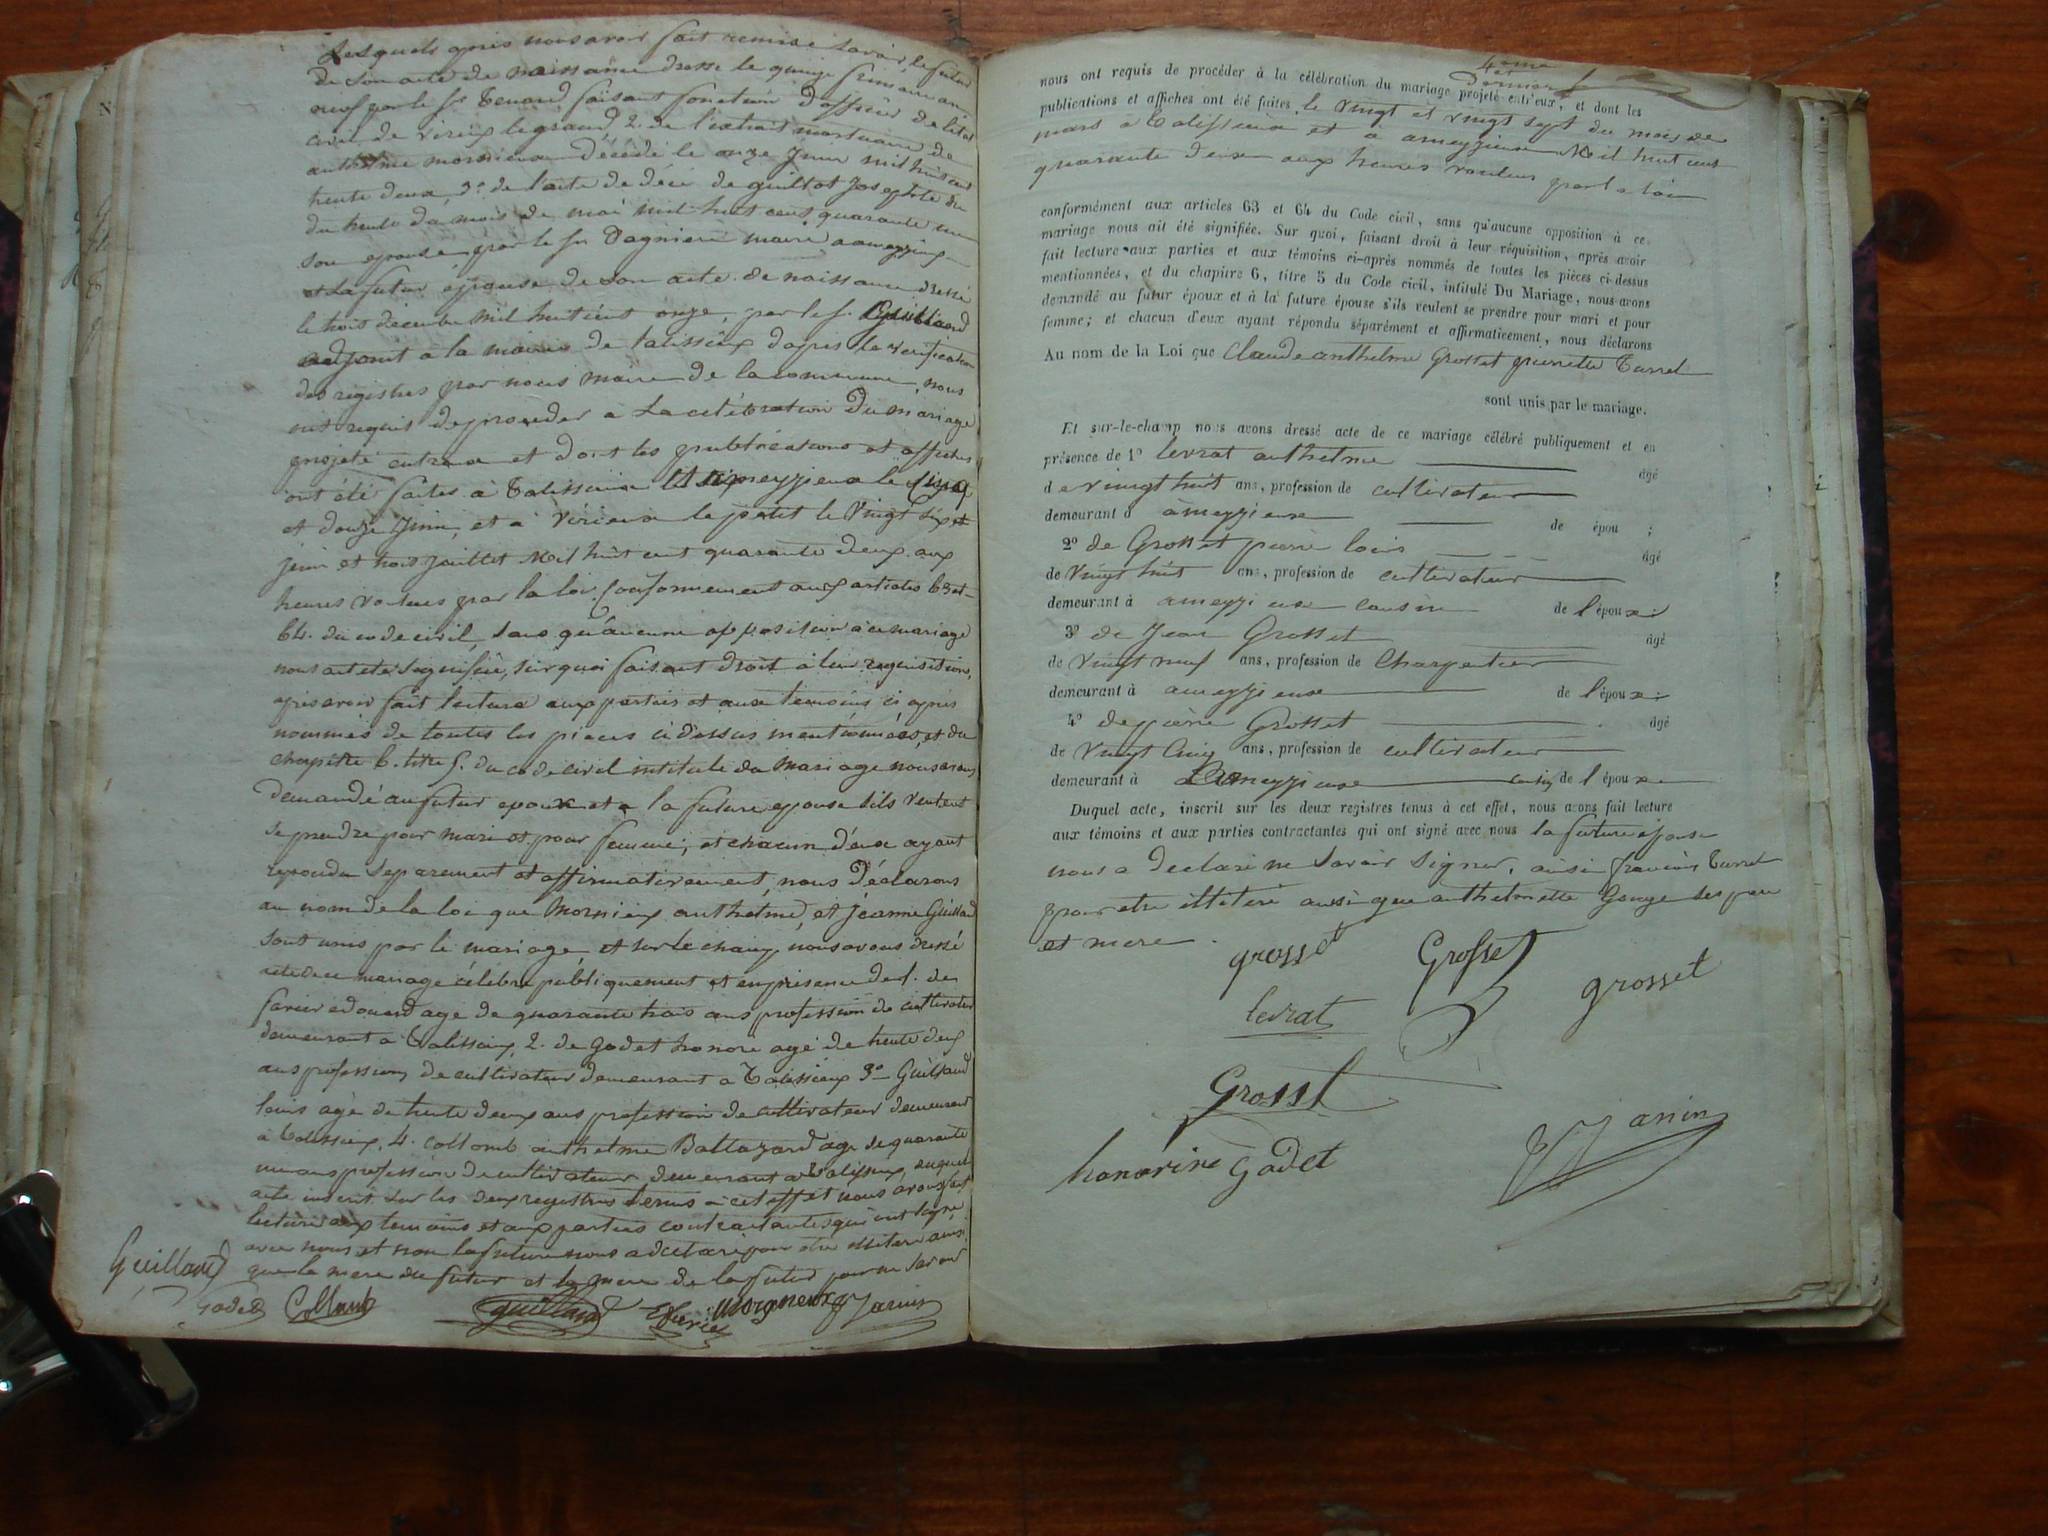 Lesquels après nous avoir fait remise savoir, le futur
de son acte de naissance dressé le quinze frimaire an
neuf par le sr Tenand faisant fonction d'officier de l'état
civil de virieu le grand, 2. de l'extrait mortuaire de
anthelme mornieux décédé le onze Juin mil huit cent
trente deux, 3º. de l'acte de décè de guillot Josephte du
du trente du mois de mai mil huit cent quarante un
son epouse par le sr Dagnieri maire a ameyzieu
et La futur épouse de son acte de naissance dressé
le trois décembre mil huit cent onze, par le s. Guilland
adjoint à la mairie de talissieux d'apres la verification
des registres par nous maire de la commune, nous
ont requis de proceder a La celebration du mariage
projeté entreux et dont les publications et affiches
ont été faites à Talissieux et ameyzieux le cinq
et douze Juin, et à virieux le petit le vingt six et
juin et trois juillet Mil huit cent quarante deux aux
heures voulues par la loi conformement aux articles 63 et
64. du code civil, sans qu'aucune opposition à ce mariage
nous ait été signifiée, sur quoi faisant droit à leur requisition,
apres avoir fait lecture aux parties et aux temoins ci apres
nommés de toutes les pieces ci dessus mentionnées, et du
chapitre 6. titre 5. du code civil intitulé du Mariage nous avons
demandé au futur epoux et a la future epouse s'ils veulent
se prendre pour mari et pour femme, et chacun d'eux ayant
repondu separement et affirmativement, nous déclarons
au nom de la loi que Mornieux anthelme, et jeanne Guilland
sont unis par le mariage, et sur le champ, nous avons dressé
acte de ce mariage célébré publiquement et en présence de 1. de
favier edouard agé de quarante trois ans profession de cultivateur
demeurant à Talissieux, 2. de Godet honoré agé de trente deux
ans profession de cultivateur demeurant a Talissieux 3º Guilland
louis agé de trente deux ans profession de cultivateur demeurant
à talissieux, 4. collomb anthelme Baltazard agé de quarante
un ans profession de cultivateur demeurant a talissieux, duquel
acte inscrit sur les deux registres tenus à cet effet nous avons fait
lecture aux temoins et aux parties contractantes qui ont signé
avec nous et non la future nous a declaré pour être illiteré ainsi
que la mere du futur et la mere de la futur pour ne savoir
Guilland
Godet Collomb guilland Efavier morgneux Janin
4eme
et
Dernier
nous ont requis de procéder à la célébration du mariage projeté entr'eux, et dont les
publications et affiches ont été faites le vingt et vingt sept du mois de
mars à talissieux et à ameyzieux Mil huit cent
quarante deux aux heures voulues par la loi
conformément aux articles 63 et 64 du Code civil, sans qu'aucune opposition à ce
mariage nous ait été signifiée. Sur quoi, faisant droit à leur réquisition, après avoir
fait lecture aux parties et aux témoins ci-après nommés de toutes les pièces ci-dessus
mentionnées, et du chapitre 6, titre 5 du Code civil, intitulé Du Mariage, nous avons
demandé au futur époux et à la future épouse s'ils veulent se prendre pour mari et pour
femme; et chacun d'eux ayant répondu séparément et affirmativement, nous déclarons
Au nom de la Loi que Claude anthelme Grosset pierrette Turrel
sont unis par le mariage.
Et sur-le-champ nous avons dressé acte de ce mariage célébré publiquement et en
présence de 1º levrat anthelme âgé
de vingt huit ans, profession de cultivateur
demeurant à ameyzieux de épou ;
2º de Grosset pierre louis âgé
de vingt huit ans, profession de cultivateur
demeurant à ameyzieux cousin de l'époux;
3º de Jean Grosset âgé
de vingt neuf ans, profession de Charpentier
demeurant à ameyzieux de l'époux;
4º de pierre Grosset âgé
de vingt cinq ans, profession de cultivateur
demeurant à ameyzieux cousin de l'époux.
Duquel acte, inscrit sur les deux registres tenus à cet effet, nous avons fait lecture
aux témoins et aux parties contractantes qui ont signé avec nous la future épouse
nous a declaré ne savoir signer, ainsi francois Turrel
pour etre illiteré aussi que anthelmette Gonge ses pere
et mere
grosset Grosset grosset
levrat
Grosst
honorine Godet Janin